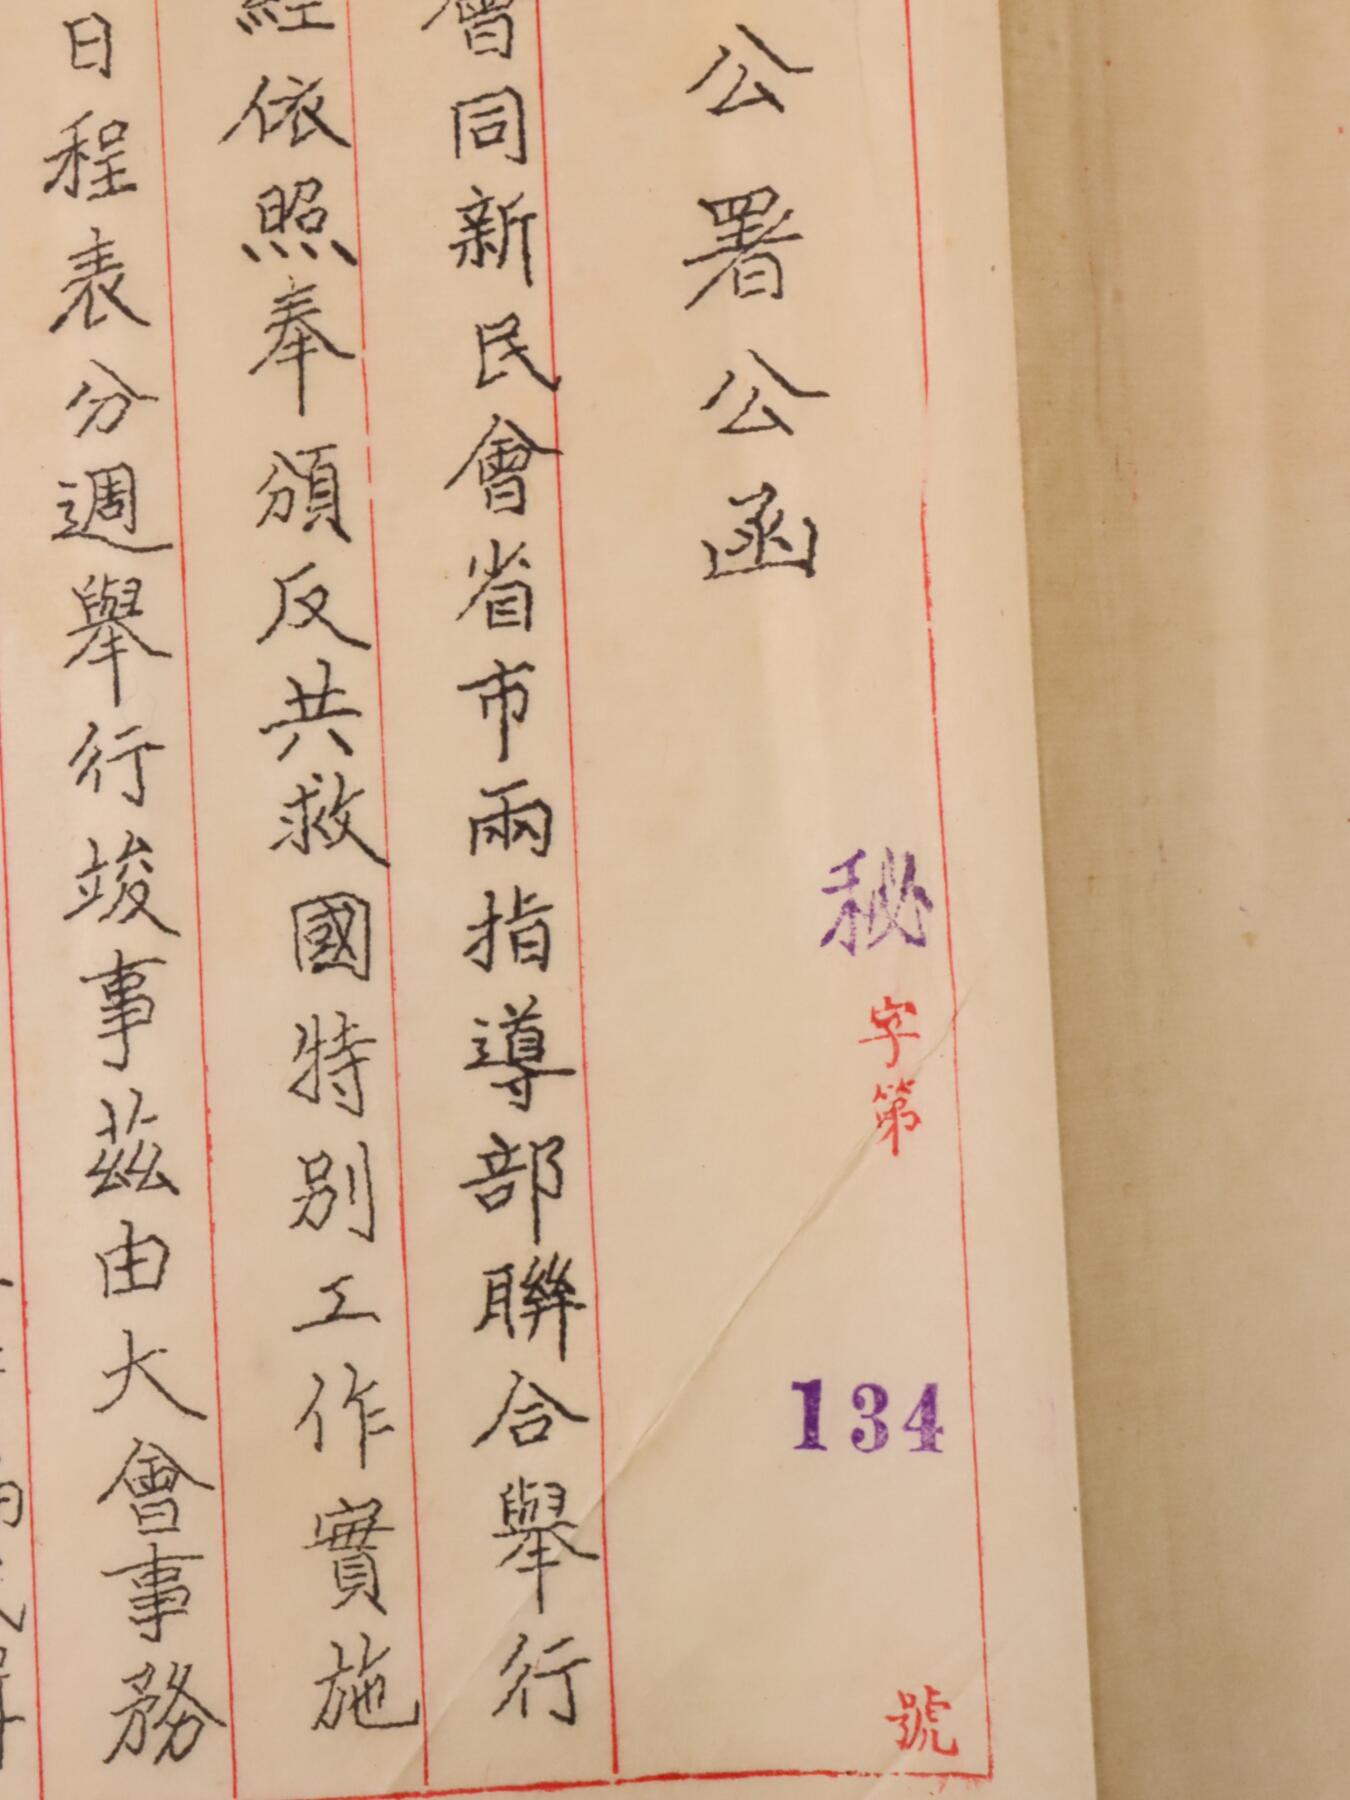 秘字第134號
公署公函
會同新民會省市兩指導部聯合舉行
經依照奉頒反共救國特別工作實施
日程表分週舉行竣事茲由大會事務